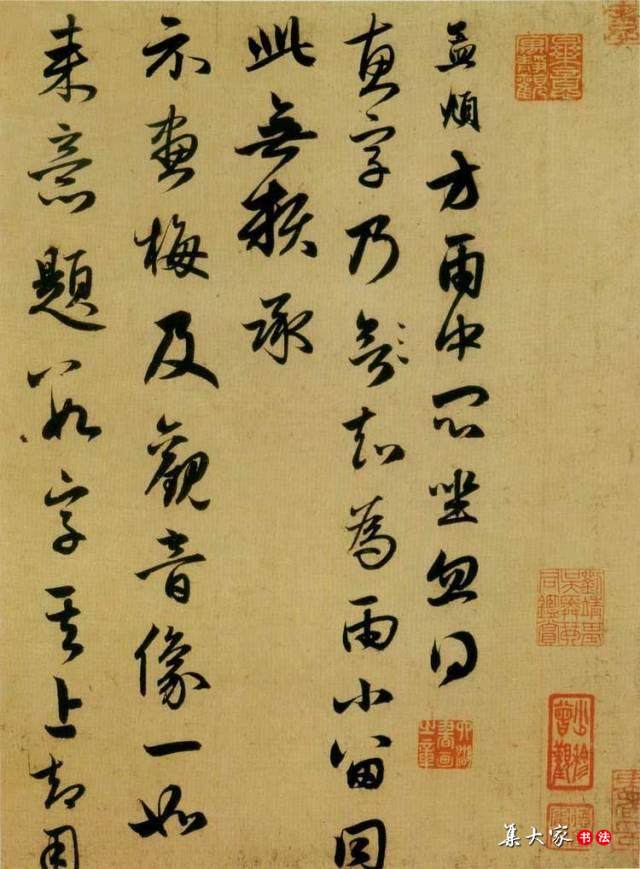 孟頫方雨中悶坐忽得
惠字乃知為雨小留同
此無賴承
示畫梅及觀音像一如
來意題數字其上却用
集大家 书法